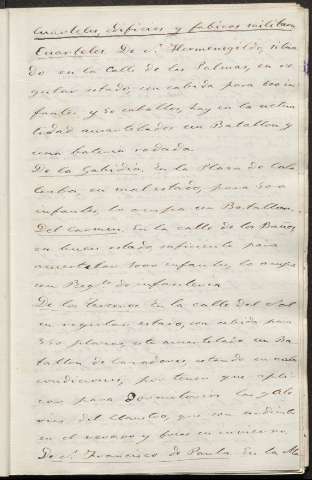 Cuarteles, edificios y fabricas militares
Cuarteles De Sn. Hermenegildo, situa
do en la Calle de las Palmas, en re
gular estado, con cabida para 800 in
fantes y 50 caballos, hay en la actua
lidad acuartelados un Batallon y
una bateria rodada.
De la Gabidia, en la Plaza de
en mal estado, para 500
infantes, lo ocupa un Batallon.
Del Carmen, en la calle de los Baños,
en buen estado suficiente para
acuartelar 1000 infantes, lo ocupa
un Regto. de infanteria
De los terceros, en la calle del Sol
en regular estado, con cabida para
550 plazas, esta acuartelado un Ba
tallon de Cazadores, estando en malas
condiciones, por tener que apli
carse para Dormitorios las gale
rias del Claustro, que son ardientes
en el verano y frias en invierno
De Sn. Francisco de Paula, en la